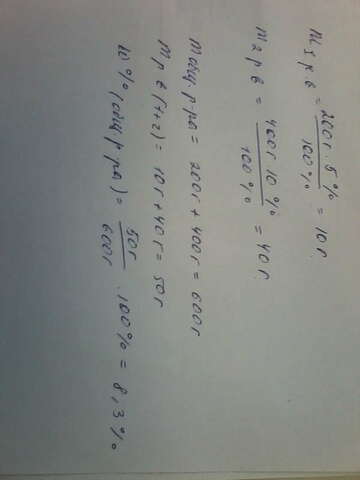 m1 р.в = 200г · 5% / 100% = 10г.
m2 р в = 400г · 10% / 100% = 40г.
m общ. р-ра = 200г + 400г = 600г
m р в (1+2) = 10г + 40г = 50г
w % (общ. р-ра) = 50г / 600г · 100% = 8,3%